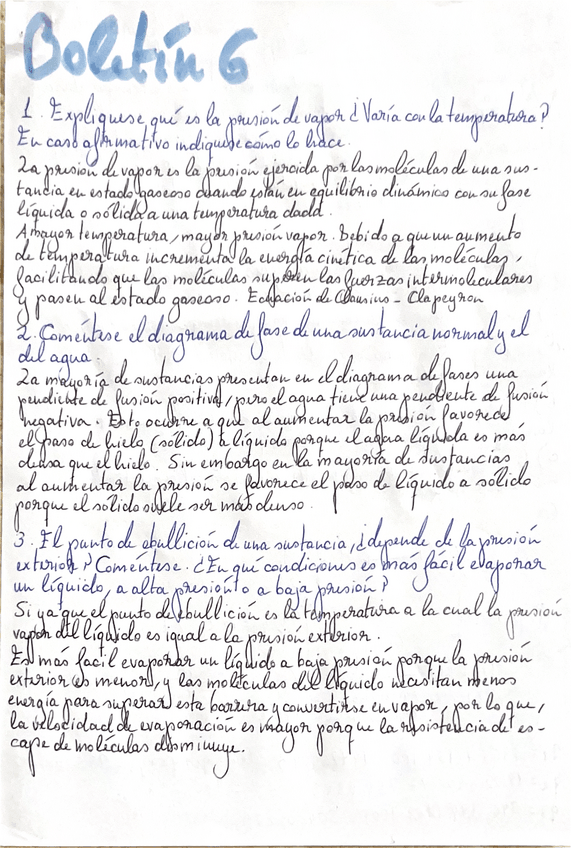 Boletín 6
1. Expliquese qué es la presión de vapor ¿Varía con la temperatura?
En caso afirmativo indiquese cómo lo hace.
La presión de vapor es la presión ejercida por las moléculas de una sus-
tancia en estado gaseoso cuando están en equilibrio dinámico con su fase
líquida o sólida a una temperatura dada.
A mayor temperatura, mayor presión vapor. Debido a que un aumento
de temperatura incrementa la energía cinética de las moléculas,
facilitando que las moléculas superen las fuerzas intermoleculares
y pasen al estado gaseoso. Ecuación de Clausius - Clapeyron
2. Coméntese el diagrama de fase de una sustancia normal y el
del agua.
La mayoría de sustancias presentan en el diagrama de fases una
pendiente de fusión positiva, pero el agua tiene una pendiente de fusión
negativa. Esto ocurre a que al aumentar la presión favorece
el paso de hielo (sólido) a líquido porque el agua líquida es más
densa que el hielo. Sin embargo en la mayoría de sustancias
al aumentar la presión se favorece el paso de líquido a sólido
porque el sólido suele ser más denso.
3. El punto de ebullición de una sustancia, ¿depende de la presión
exterior? Coméntese. ¿En qué condiciones es más fácil evaporar
un líquido, a alta presión o a baja presión?
Si ya que el punto de ebullición es la temperatura a la cual la presión
vapor del líquido es igual a la presión exterior.
Es más facil evaporar un líquido a baja presión porque la presión
exterior es menor, y las moléculas del líquido necesitan menos
energía para superar esta barrera y convertirse en vapor, por lo que,
la velocidad de evaporación es mayor porque la resistencia de es-
cape de moléculas disminuye.